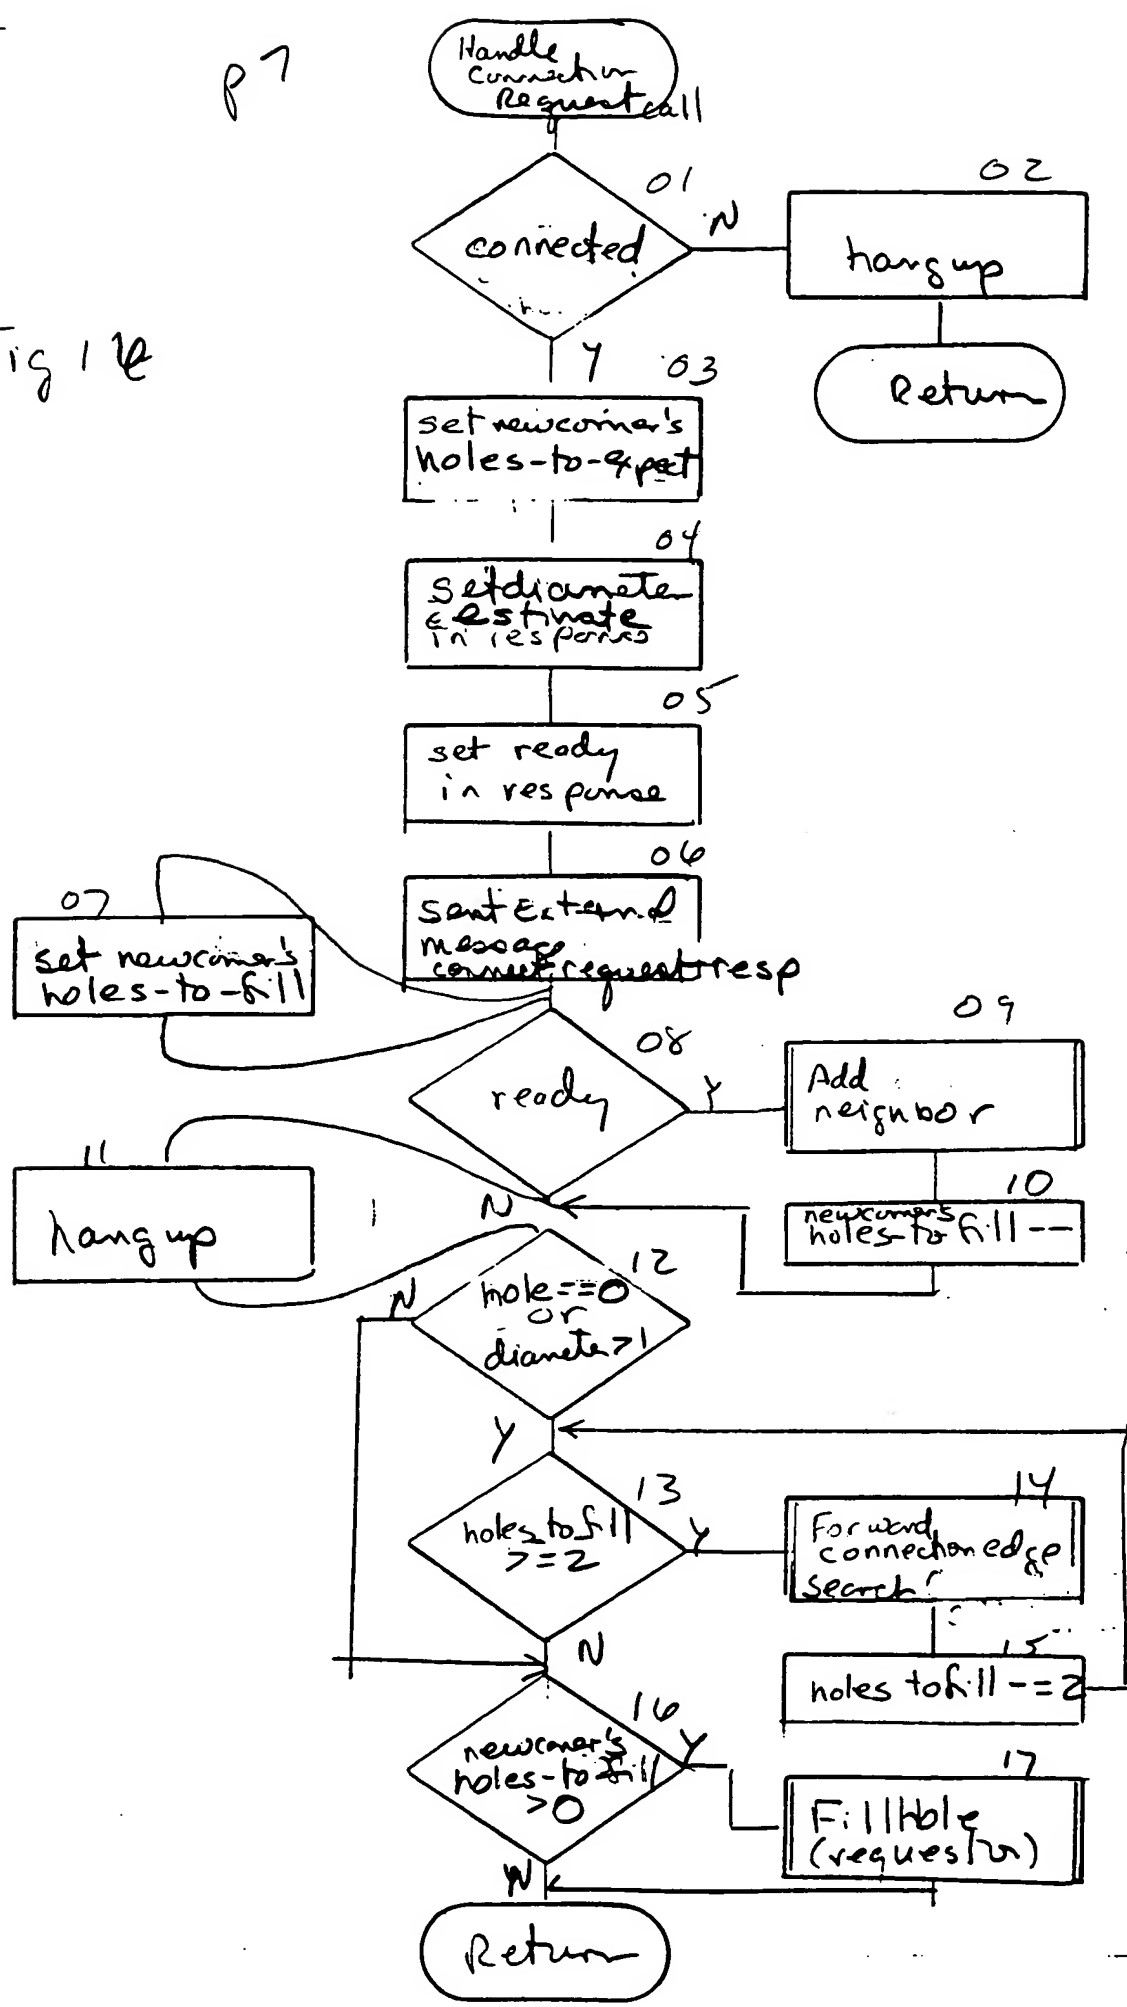 p 7
Handle
Connection
Request call
01
connected
N
02
hang up
Return
Fig 1
Y
03
set newcomer's
holes-to-expect
04
set diameter
estimate
in response
05
set ready
in response
06
sent External
message
connect request resp
07
set newcomer's
holes-to-fill
08
ready
Y
09
Add
neighbor
10
newcomer's
holes-to fill --
N
11
hang up
12
hole==0
or
diameter>1
N
Y
13
holes to fill
>=2
Y
14
Forward
connection edge
search
15
holes to fill -=2
N
16
newcomer's
holes-to fill
>0
Y
17
Fill Hole
(requestor)
N
Return